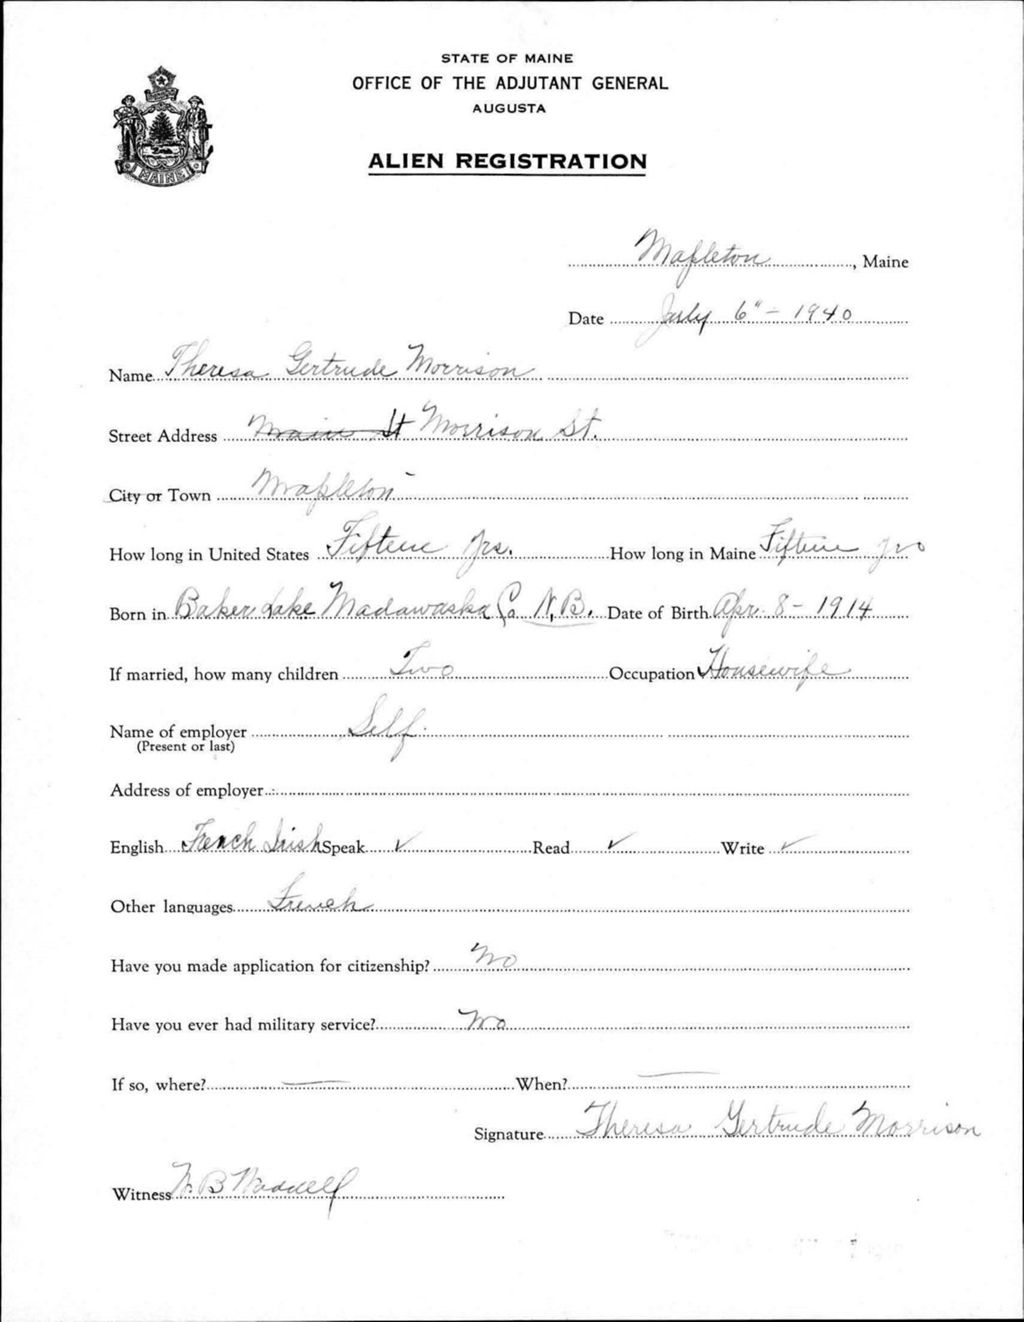 STATE OF MAINE
OFFICE OF THE ADJUTANT GENERAL
AUGUSTA
MAINE
ALIEN REGISTRATION
Mapleton, Maine
Date July 6" - 1940
Name Theresa Gertrude Morrison
Street Address Main St Morrison St.
City or Town Mapleton
How long in United States Fifteen Yrs. How long in Maine Fifteen yrs
Born in Baker Lake Madawaska Co N.B. Date of Birth Apr. 8 - 1914
If married, how many children Two Occupation Housewife
Name of employer Self.
(Present or last)
Address of employer
English French Irish Speak ✓ Read ✓ Write ✓
Other languages French
Have you made application for citizenship? No
Have you ever had military service? No
If so, where? — When? —
Signature Theresa Gertrude Morrison
Witness B